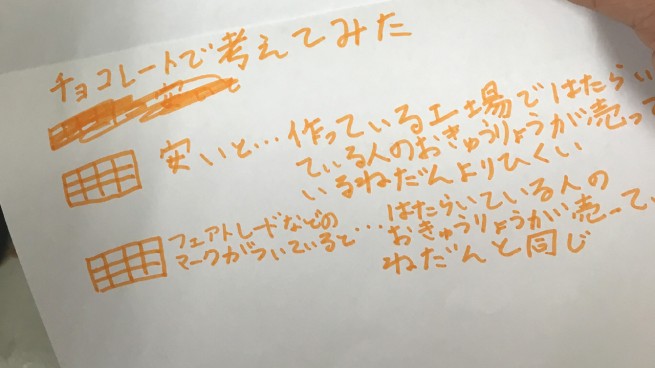 チョコレートで考えてみた
安いと…作っている工場ではたらい
ている人のおきゅうりょうが売って
いるねだんよりひくい
フェアトレードなどの
マークがついていると…はたらいている人の
おきゅうりょうが売ってい
ねだんと同じ